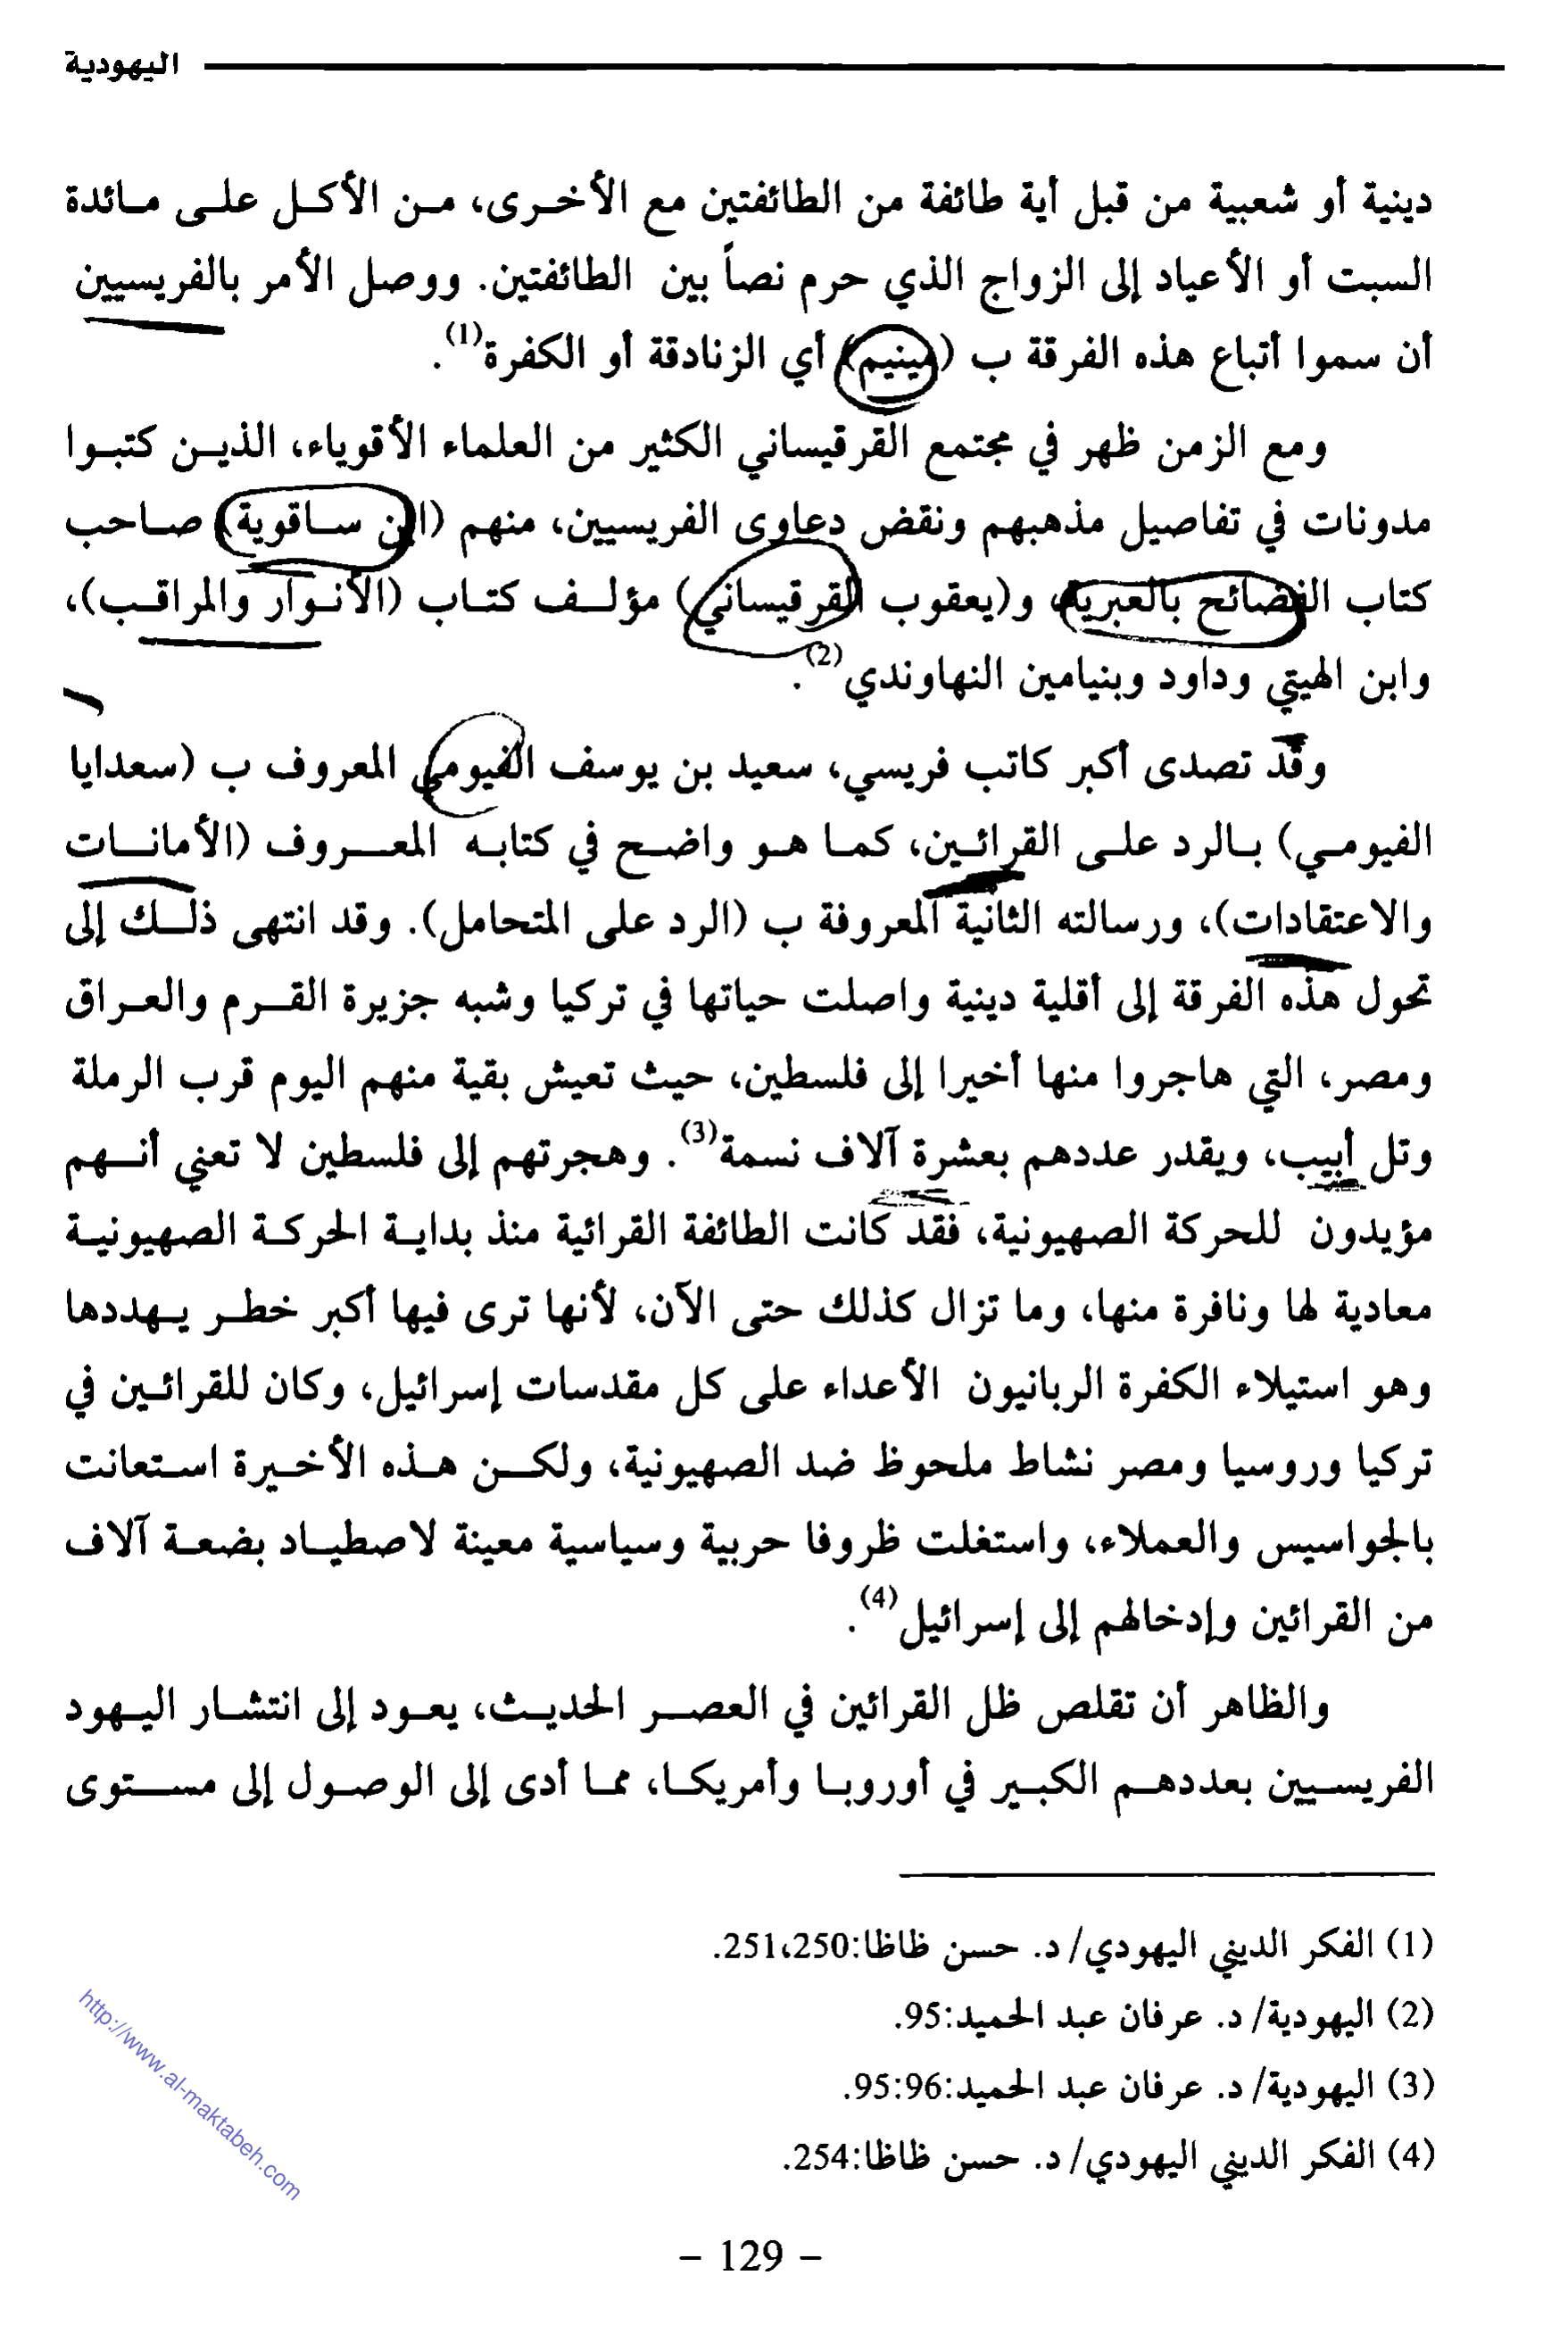 اليهودية
دينية أو شعبية من قبل أية طائفة من الطائفتين مع الأخرى، من الأكل على مائدة
السبت أو الأعياد إلى الزواج الذي حرم نصاً بين الطائفتين. ووصل الأمر بالفريسيين
أن سموا أتباع هذه الفرقة ب (مينيم) أي الزنادقة أو الكفرة(1).
ومع الزمن ظهر في مجتمع القرقيساني الكثير من العلماء الأقوياء، الذين كتبوا
مدونات في تفاصيل مذهبهم ونقض دعاوى الفريسيين، منهم (ابن ساقوية) صاحب
كتاب الفضائح بالعبرية، و(يعقوب القرقيساني) مؤلف كتاب (الأنوار والمراقب)،
وابن الهيتي وداود وبنيامين النهاوندي(2).
وقد تصدى أكبر كاتب فريسي، سعيد بن يوسف الفيومي المعروف ب (سعدايا
الفيومي) بالرد على القرائين، كما هو واضح في كتابه المعروف (الأمانات
والاعتقادات)، ورسالته الثانية المعروفة ب (الرد على المتحامل). وقد انتهى ذلك إلى
تحول هذه الفرقة إلى أقلية دينية واصلت حياتها في تركيا وشبه جزيرة القرم والعراق
ومصر، التي هاجروا منها أخيرا إلى فلسطين، حيث تعيش بقية منهم اليوم قرب الرملة
وتل أبيب، ويقدر عددهم بعشرة آلاف نسمة(3). وهجرتهم إلى فلسطين لا تعني أنهم
مؤيدون للحركة الصهيونية، فقد كانت الطائفة القرائية منذ بداية الحركة الصهيونية
معادية لها ونافرة منها، وما تزال كذلك حتى الآن، لأنها ترى فيها أكبر خطر يهددها
وهو استيلاء الكفرة الربانيون الأعداء على كل مقدسات إسرائيل، وكان للقرائين في
تركيا وروسيا ومصر نشاط ملحوظ ضد الصهيونية، ولكن هذه الأخيرة استعانت
بالجواسيس والعملاء، واستغلت ظروفا حربية وسياسية معينة لاصطياد بضعة آلاف
من القرائين وإدخالهم إلى إسرائيل(4).
والظاهر أن تقلص ظل القرائين في العصر الحديث، يعود إلى انتشار اليهود
الفريسيين بعددهم الكبير في أوروبا وأمريكا، مما أدى إلى الوصول إلى مستوى
(1) الفكر الديني اليهودي/ د. حسن ظاظا:250،251.
(2) اليهودية/ د. عرفان عبد الحميد:95.
(3) اليهودية/ د. عرفان عبد الحميد:95:96.
(4) الفكر الديني اليهودي/ د. حسن ظاظا:254.
http://www.al-maktabeh.com
- 129 -